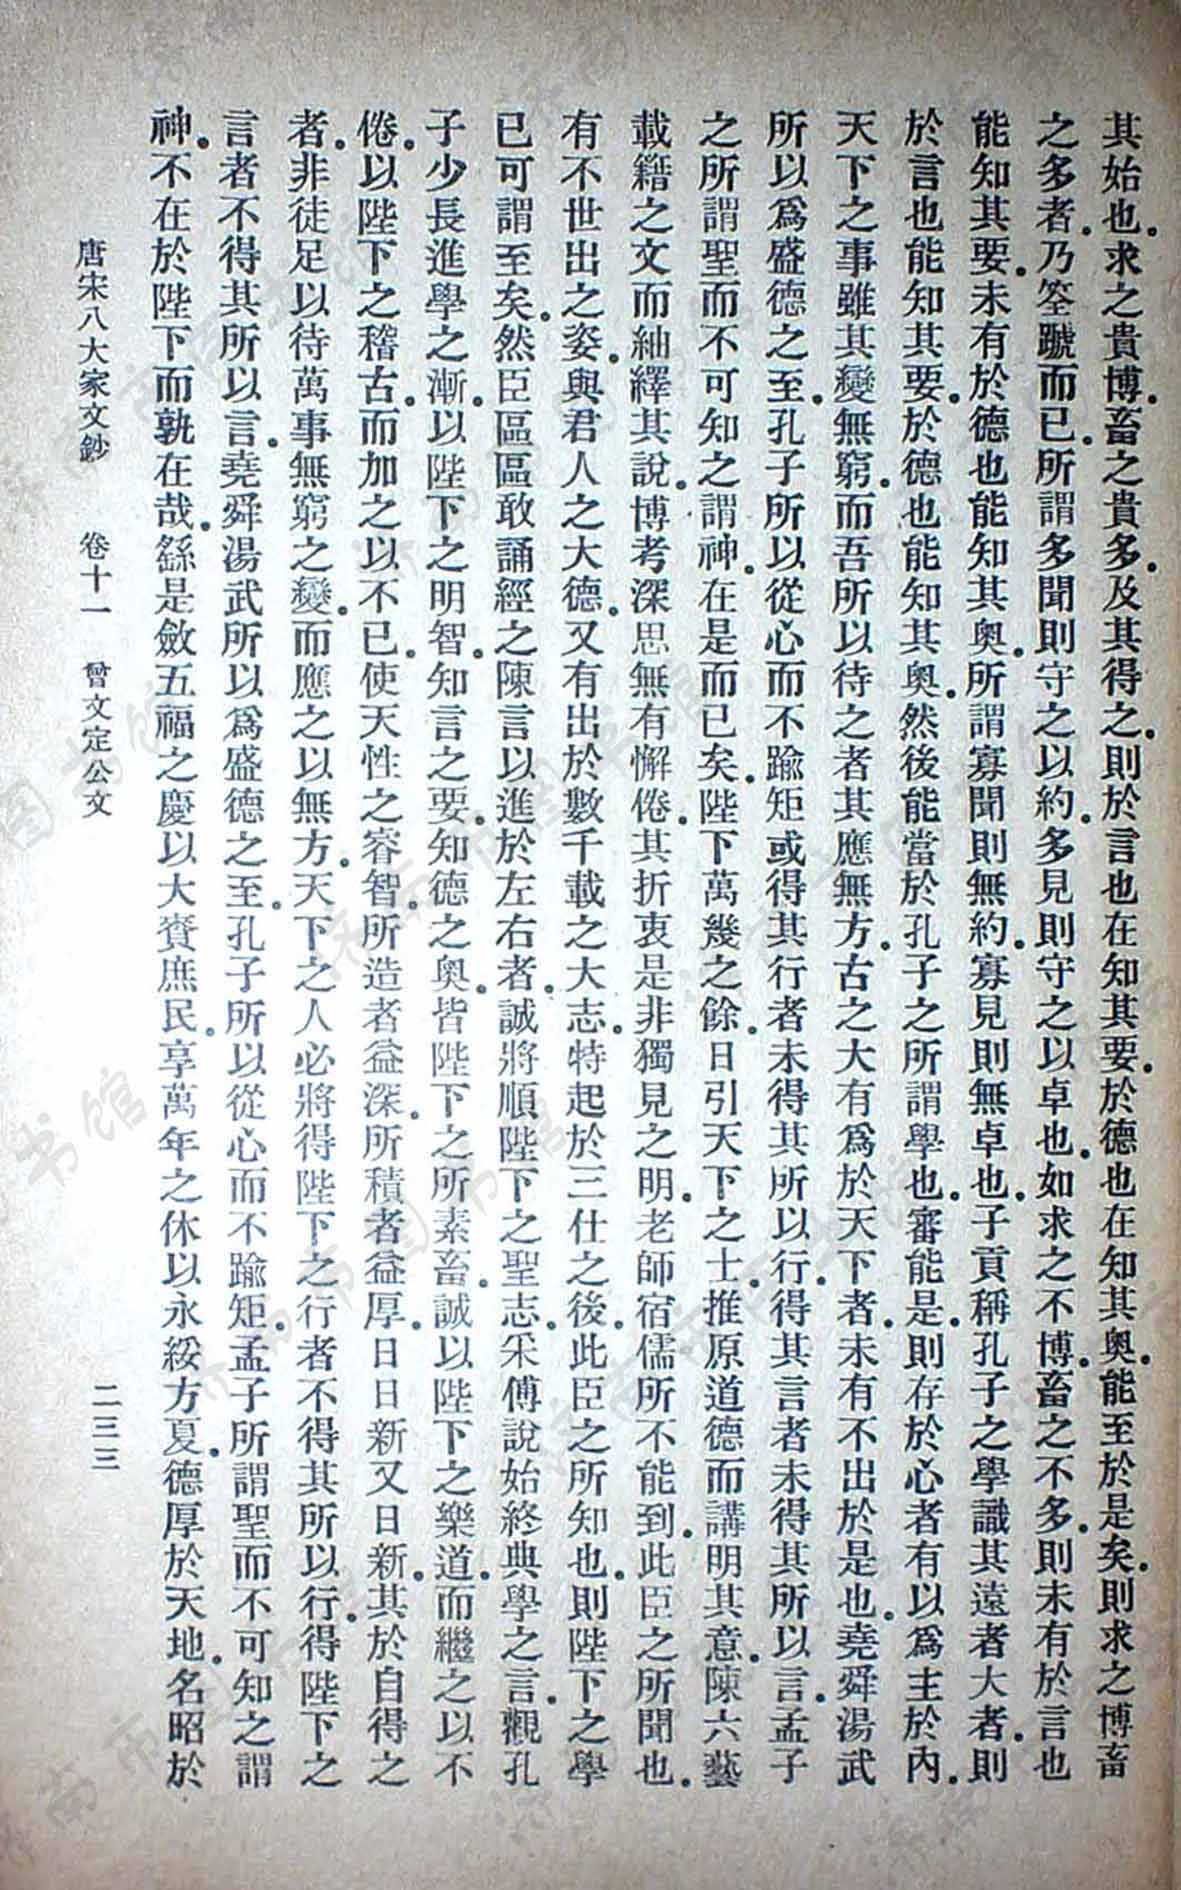 其始也。求之貴博。畜之貴多。及其得之。則於言也在知其要。於德也在知其奧。能至於是矣。則求之博畜
之多者。乃筌蹏而已。所謂多聞則守之以約。多見則守之以卓也。如求之不博。畜之不多。則未有於言也
能知其要。未有於德也能知其奧。所謂寡聞則無約。寡見則無卓也。子貢稱孔子之學識其遠者大者。則
於言也能知其要。於德也能知其奧。然後能當於孔子之所謂學也。審能是。則存於心者有以爲主於內。
天下之事雖其變無窮。而吾所以待之者其應無方。古之大有爲於天下者。未有不出於是也。堯舜湯武
所以爲盛德之至。孔子所以從心而不踰矩。或得其行者未得其所以行。得其言者未得其所以言。孟子
之所謂聖而不可知之謂神。在是而已矣。陛下萬幾之餘。日引天下之士。推原道德而講明其意。陳六藝
載籍之文而紬繹其說。博考深思無有懈倦。其折衷是非獨見之明。老師宿儒所不能到。此臣之所聞也。
有不世出之姿。與君人之大德。又有出於數千載之大志。特起於三仕之後。此臣之所知也。則陛下之學
已可謂至矣。然臣區區敢誦經之陳言以進於左右者。誠將順陛下之聖志。采傅說始終典學之言。觀孔
子少長進學之漸。以陛下之明智。知言之要。知德之奧。皆陛下之所素畜。誠以陛下之樂道。而繼之以不
倦。以陛下之稽古。而加之以不已。使天性之睿智。所造者益深。所積者益厚。日日新又日新。其於自得之
者。非徒足以待萬事無窮之變。而應之以無方。天下之人必將得陛下之行者不得其所以行。得陛下之
言者不得其所以言。堯舜湯武所以爲盛德之至。孔子所以從心而不踰矩。孟子所謂聖而不可知之謂
神。不在於陛下而孰在哉。繇是斂五福之慶以大賚庶民。享萬年之休以永綏方夏。德厚於天地。名昭於
唐宋八大家文鈔 卷十一 曾文定公文 二三三